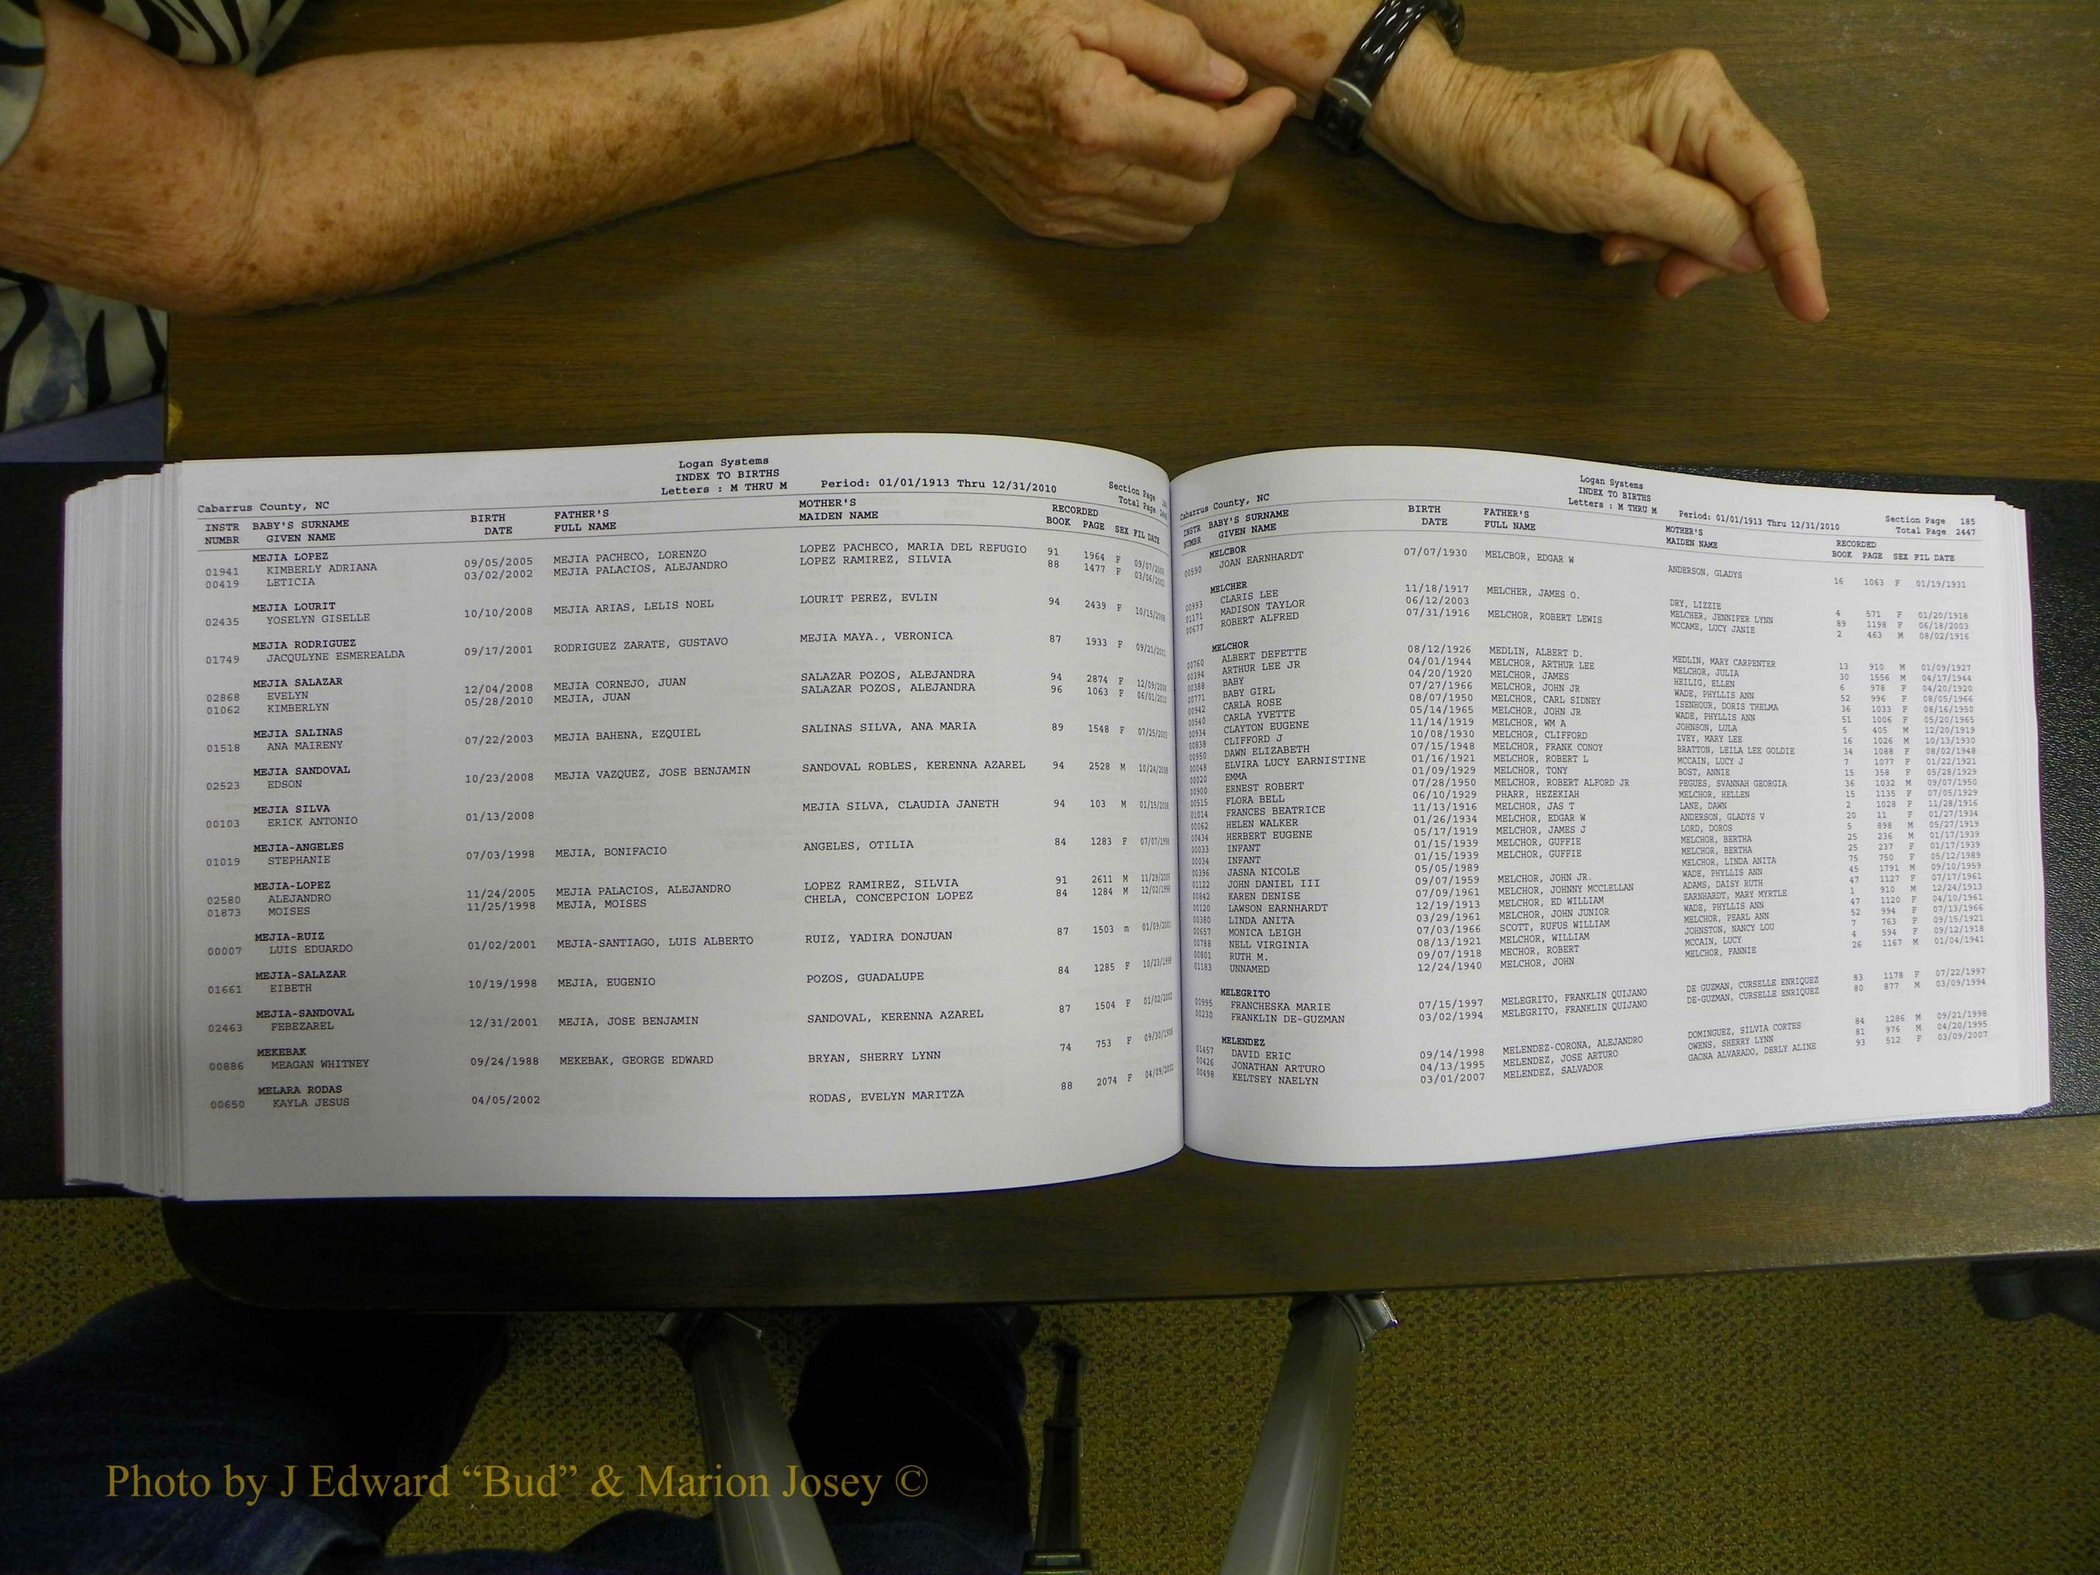 Logan Systems
INDEX TO BIRTHS
Cabarrus County, NC Letters : M THRU M Period: 01/01/1913 Thru 12/31/2010 Section Page
Total Page
INSTR BABY'S SURNAME BIRTH FATHER'S MOTHER'S RECORDED
NUMBR GIVEN NAME DATE FULL NAME MAIDEN NAME BOOK PAGE SEX FIL DATE
MEJIA LOPEZ
01941 KIMBERLY ADRIANA 09/05/2005 MEJIA PACHECO, LORENZO LOPEZ PACHECO, MARIA DEL REFUGIO 91 1964 F 09/07/2005
00419 LETICIA 03/02/2002 MEJIA PALACIOS, ALEJANDRO LOPEZ RAMIREZ, SILVIA 88 1477 F 03/06/2002
MEJIA LOURIT
02435 YOSELYN GISELLE 10/10/2008 MEJIA ARIAS, LELIS NOEL LOURIT PEREZ, EVLIN 94 2439 F 10/15/2008
MEJIA RODRIGUEZ
01749 JACQULYNE ESMEREALDA 09/17/2001 RODRIGUEZ ZARATE, GUSTAVO MEJIA MAYA., VERONICA 87 1933 F 09/21/2001
MEJIA SALAZAR
02868 EVELYN 12/04/2008 MEJIA CORNEJO, JUAN SALAZAR POZOS, ALEJANDRA 94 2874 F 12/09/2008
01062 KIMBERLYN 05/28/2010 MEJIA, JUAN SALAZAR POZOS, ALEJANDRA 96 1063 F 06/01/2010
MEJIA SALINAS
01518 ANA MAIRENY 07/22/2003 MEJIA BAHENA, EZQUIEL SALINAS SILVA, ANA MARIA 89 1548 F 07/25/2003
MEJIA SANDOVAL
02523 EDSON 10/23/2008 MEJIA VAZQUEZ, JOSE BENJAMIN SANDOVAL ROBLES, KERENNA AZAREL 94 2528 M 10/24/2008
MEJIA SILVA
00103 ERICK ANTONIO 01/13/2008 MEJIA SILVA, CLAUDIA JANETH 94 103 M 01/15/2008
MEJIA-ANGELES
01019 STEPHANIE 07/03/1998 MEJIA, BONIFACIO ANGELES, OTILIA 84 1283 F 07/07/1998
MEJIA-LOPEZ
02580 ALEJANDRO 11/24/2005 MEJIA PALACIOS, ALEJANDRO LOPEZ RAMIREZ, SILVIA 91 2611 M 11/29/2005
01873 MOISES 11/25/1998 MEJIA, MOISES CHELA, CONCEPCION LOPEZ 84 1284 M 12/02/1998
MEJIA-RUIZ
00007 LUIS EDUARDO 01/02/2001 MEJIA-SANTIAGO, LUIS ALBERTO RUIZ, YADIRA DONJUAN 87 1503 m 01/09/2001
MEJIA-SALAZAR
01661 EIBETH 10/19/1998 MEJIA, EUGENIO POZOS, GUADALUPE 84 1285 F 10/23/1998
MEJIA-SANDOVAL
02463 FEBEZAREL 12/31/2001 MEJIA, JOSE BENJAMIN SANDOVAL, KERENNA AZAREL 87 1504 F 01/02/2002
MEKEBAK
00886 MEAGAN WHITNEY 09/24/1988 MEKEBAK, GEORGE EDWARD BRYAN, SHERRY LYNN 74 753 F 09/30/1988
MELARA RODAS
00650 KAYLA JESUS 04/05/2002 RODAS, EVELYN MARITZA 88 2074 F 04/09/2002
Logan Systems
INDEX TO BIRTHS
Cabarrus County, NC Letters : M THRU M Period: 01/01/1913 Thru 12/31/2010 Section Page 185
Total Page 2447
INSTR BABY'S SURNAME BIRTH FATHER'S MOTHER'S RECORDED
NUMBR GIVEN NAME DATE FULL NAME MAIDEN NAME BOOK PAGE SEX FIL DATE
MELCBOR
00590 JOAN EARNHARDT 07/07/1930 MELCBOR, EDGAR W ANDERSON, GLADYS 16 1063 F 01/19/1931
MELCHER
00993 CLARIS LEE 11/18/1917 MELCHER, JAMES O. DRY, LIZZIE 4 571 F 01/20/1918
01171 MADISON TAYLOR 06/12/2003 MELCHER, JENNIFER LYNN 89 1198 F 06/18/2003
00677 ROBERT ALFRED 07/31/1916 MELCHOR, ROBERT LEWIS MCCAME, LUCY JANIE 2 463 M 08/02/1916
MELCHOR
00760 ALBERT DEFETTE 08/12/1926 MEDLIN, ALBERT D. MEDLIN, MARY CARPENTER 13 910 M 01/09/1927
00394 ARTHUR LEE JR 04/01/1944 MELCHOR, ARTHUR LEE MELCHOR, JULIA 30 1556 M 04/17/1944
00388 BABY 04/20/1920 MELCHOR, JAMES HEILIG, ELLEN 6 978 F 04/20/1920
00771 BABY GIRL 07/27/1966 MELCHOR, JOHN JR WADE, PHYLLIS ANN 52 996 F 08/05/1966
00942 CARLA ROSE 08/07/1950 MELCHOR, CARL SIDNEY ISENHOUR, DORIS THELMA 36 1033 F 08/16/1950
00540 CARLA YVETTE 05/14/1965 MELCHOR, JOHN JR WADE, PHYLLIS ANN 51 1006 F 05/20/1965
00934 CLAYTON EUGENE 11/14/1919 MELCHOR, WM A JOHNSON, LULA 5 405 M 12/20/1919
00838 CLIFFORD J 10/08/1930 MELCHOR, CLIFFORD IVEY, MARY LEE 16 1026 M 10/13/1930
00950 DAWN ELIZABETH 07/15/1948 MELCHOR, FRANK CONOY BRATTON, LEILA LEE GOLDIE 34 1088 F 08/02/1948
00048 ELVIRA LUCY EARNISTINE 01/16/1921 MELCHOR, ROBERT L MCCAIN, LUCY J 7 1077 F 01/22/1921
00020 EMMA 01/09/1929 MELCHOR, TONY BOST, ANNIE 15 358 F 05/28/1929
00900 ERNEST ROBERT 07/28/1950 MELCHOR, ROBERT ALFORD JR PEGUES, SVANNAH GEORGIA 36 1032 M 09/07/1950
00515 FLORA BELL 06/10/1929 PHARR, HEZEKIAH MELCHOR, HELLEN 15 1135 F 07/05/1929
01014 FRANCES BEATRICE 11/13/1916 MELCHOR, JAS T LANE, DAWN 2 1028 F 11/28/1916
00062 HELEN WALKER 01/26/1934 MELCHOR, EDGAR W ANDERSON, GLADYS V 20 11 F 01/27/1934
00434 HERBERT EUGENE 05/17/1919 MELCHOR, JAMES J LORD, DOROS 5 898 M 05/27/1919
00033 INFANT 01/15/1939 MELCHOR, GUFFIE MELCHOR, BERTHA 25 236 M 01/17/1939
00034 INFANT 01/15/1939 MELCHOR, GUFFIE MELCHOR, BERTHA 25 237 F 01/17/1939
00396 JASNA NICOLE 05/05/1989 MELCHOR, LINDA ANITA 75 750 F 05/12/1989
01122 JOHN DANIEL III 09/07/1959 MELCHOR, JOHN JR. WADE, PHYLLIS ANN 45 1791 M 09/10/1959
00842 KAREN DENISE 07/09/1961 MELCHOR, JOHNNY MCCLELLAN ADAMS, DAISY RUTH 47 1127 F 07/17/1961
00120 LAWSON EARNHARDT 12/19/1913 MELCHOR, ED WILLIAM EARNHARDT, MARY MYRTLE 1 910 M 12/24/1913
00380 LINDA ANITA 03/29/1961 MELCHOR, JOHN JUNIOR WADE, PHYLLIS ANN 47 1120 F 04/10/1961
00657 MONICA LEIGH 07/03/1966 SCOTT, RUFUS WILLIAM MELCHOR, PEARL ANN 52 994 F 07/13/1966
00788 NELL VIRGINIA 08/13/1921 MELCHOR, WILLIAM JOHNSTON, NANCY LOU 7 763 F 09/15/1921
00801 RUTH M. 09/07/1918 MECHOR, ROBERT MCCAIN, LUCY 4 594 F 09/12/1918
01183 UNNAMED 12/24/1940 MELCHOR, JOHN MELCHOR, FANNIE 26 1167 M 01/04/1941
MELEGRITO
00995 FRANCHESKA MARIE 07/15/1997 MELEGRITO, FRANKLIN QUIJANO DE GUZMAN, CURSELLE ENRIQUEZ 83 1178 F 07/22/1997
00230 FRANKLIN DE-GUZMAN 03/02/1994 MELEGRITO, FRANKLIN QUIJANO DE-GUZMAN, CURSELLE ENRIQUEZ 80 877 M 03/09/1994
MELENDEZ
01457 DAVID ERIC 09/14/1998 MELENDEZ-CORONA, ALEJANDRO DOMINGUEZ, SILVIA CORTES 84 1286 M 09/21/1998
00426 JONATHAN ARTURO 04/13/1995 MELENDEZ, JOSE ARTURO OWENS, SHERRY LYNN 81 976 M 04/20/1995
00498 KELTSEY NAELYN 03/01/2007 MELENDEZ, SALVADOR GAONA ALVARADO, DERLY ALINE 93 512 F 03/09/2007
Photo by J Edward “Bud” & Marion Josey ©